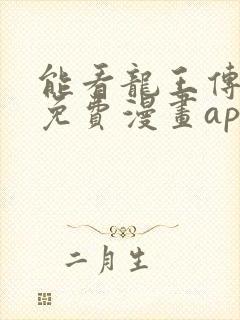 能看龍王傳
免費漫畫ap
二月生